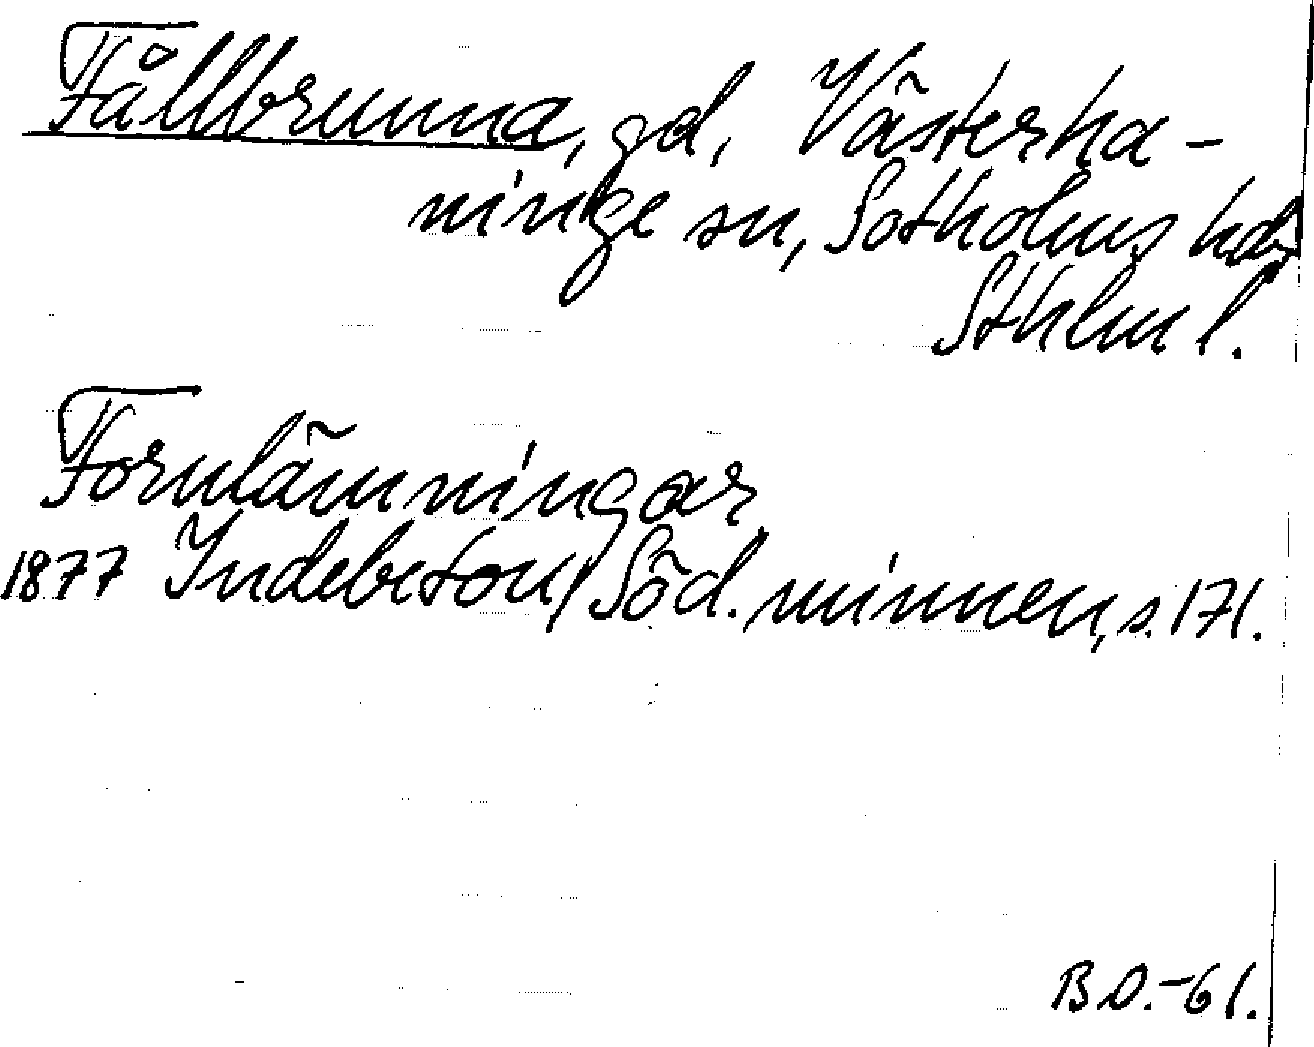 Fållbrunna, gd, Västerha-
ninge sn, Sotholms hd,
Sthlm l.
Fornlämningar
1877 Indebetou, Söd. minnen, s. 171.
B.D.-61.